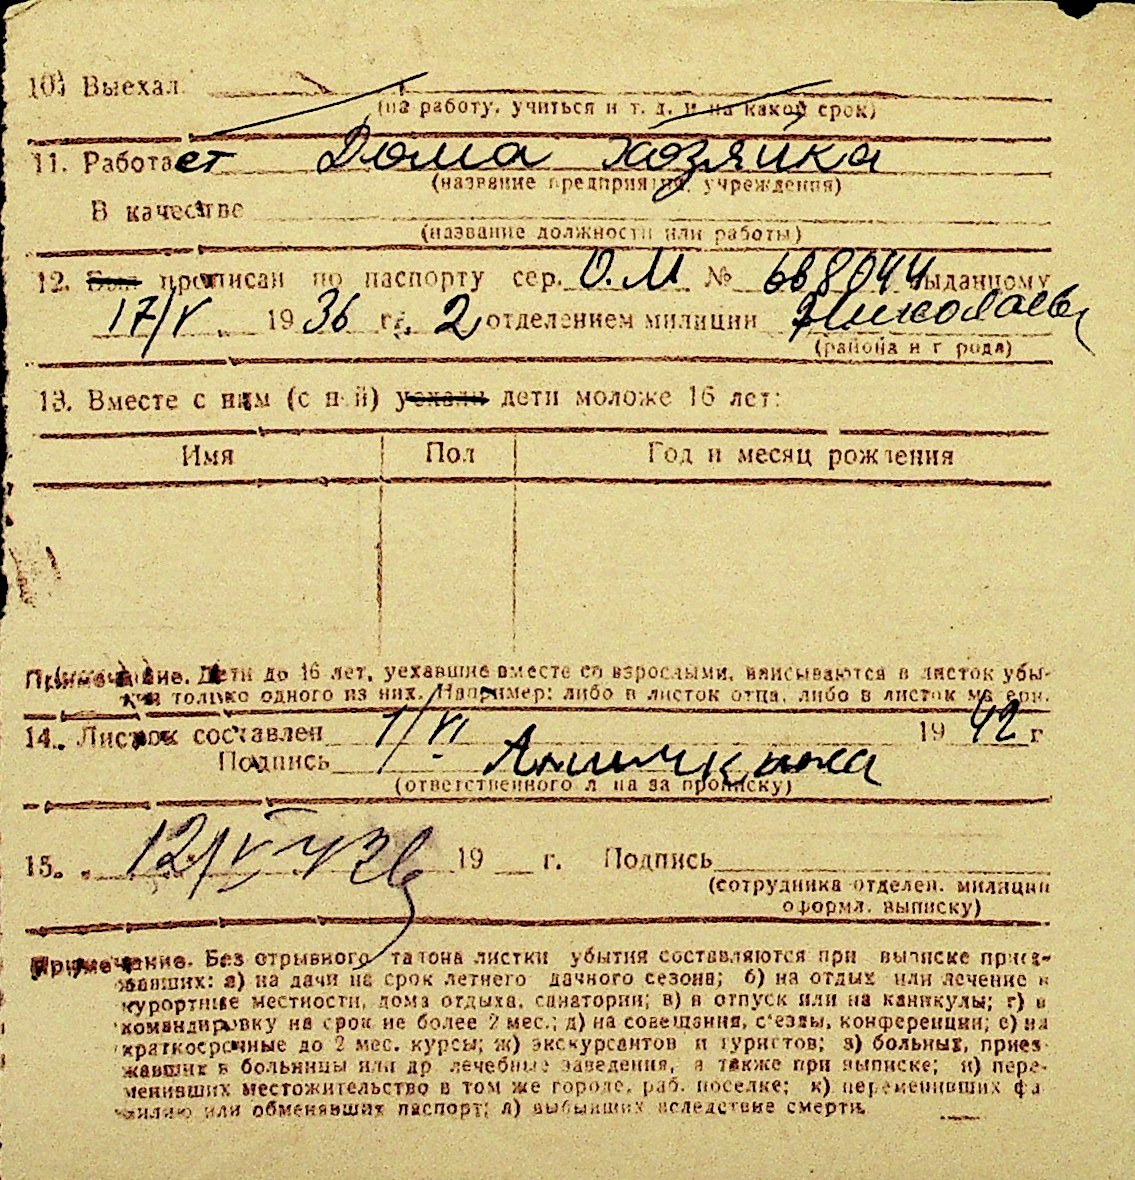 10) Выехал
(на работу, учиться и т. д. и на какой срок)
11. Работает Дома хозяйка
(название предприятия, учреждения)
В качестве
(название должности или работы)
12. Был прописан по паспорту сер. О.М № 668044 выданному
17/V 1936 г. 2 отделением милиции г Николаев
(района и г рода)
13. Вместе с ним (с н й) уехали дети моложе 16 лет:
Имя Пол Год и месяц рождения
Примечание. Дети до 16 лет, уехавшие вместе со взрослыми, вписываются в листок убы-
тия только одного из них. Например: либо в листок отца, либо в листок ма ери.
14. Листок составлен 1/VI 1942 г
Подпись
(ответственного л ца за прописку)
15. 12/V 19 г. Подпись
(сотрудника отделен. милиции
оформл. выписку)
Примечание. Без отрывного талона листки убытия составляются при выписке приез-
жавших: а) на дачи на срок летнего дачного сезона; б) на отдых или лечение в
курортные местности, дома отдыха, санатории; в) в отпуск или на каникулы; г) в
командировку на срок не более 2 мес.; д) на совещания, с'езды, конференции; е) на
краткосрочные до 2 мес. курсы; ж) экскурсантов и туристов; з) больных, приез-
жавших в больницы или др лечебные заведения, а также при выписке; и) пере-
менивших местожительство в том же городе, раб. поселке; к) переменивших фа
милию или обменявших паспорт; л) выбывших вследствие смерти.